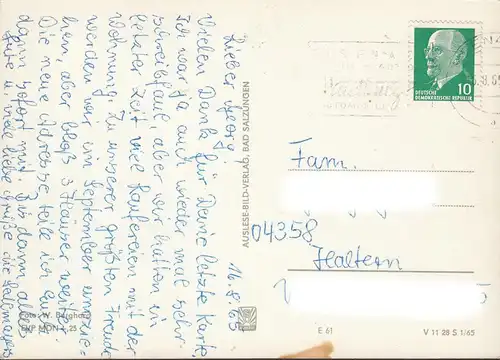 16. 8. 65
Lieber Georg!
Vielen Dank für Deine letzte Karte.
Ich war ja auch wieder mal sehr
schreibfaul, aber wir hatten in
letzter Zeit viel Lauferei mit der
Wohnung. Zu unserer größten Freude
werden wir im September umzie-
hen, aber bloß 3 Häuser weiter.
Die neue Adresse teile ich Euch
dann sofort mit. Bis dann alles
Gute u. viele liebe Grüße die
Foto: W. Burghard
EVP MDN 0,25
AUSLESE-BILD-VERLAG, BAD SALZUNGEN
DEUTSCHE
DEMOKRATISCHE REPUBLIK
10
Fam.
04358
Haltern
E 61
V 11 28 S 1/65